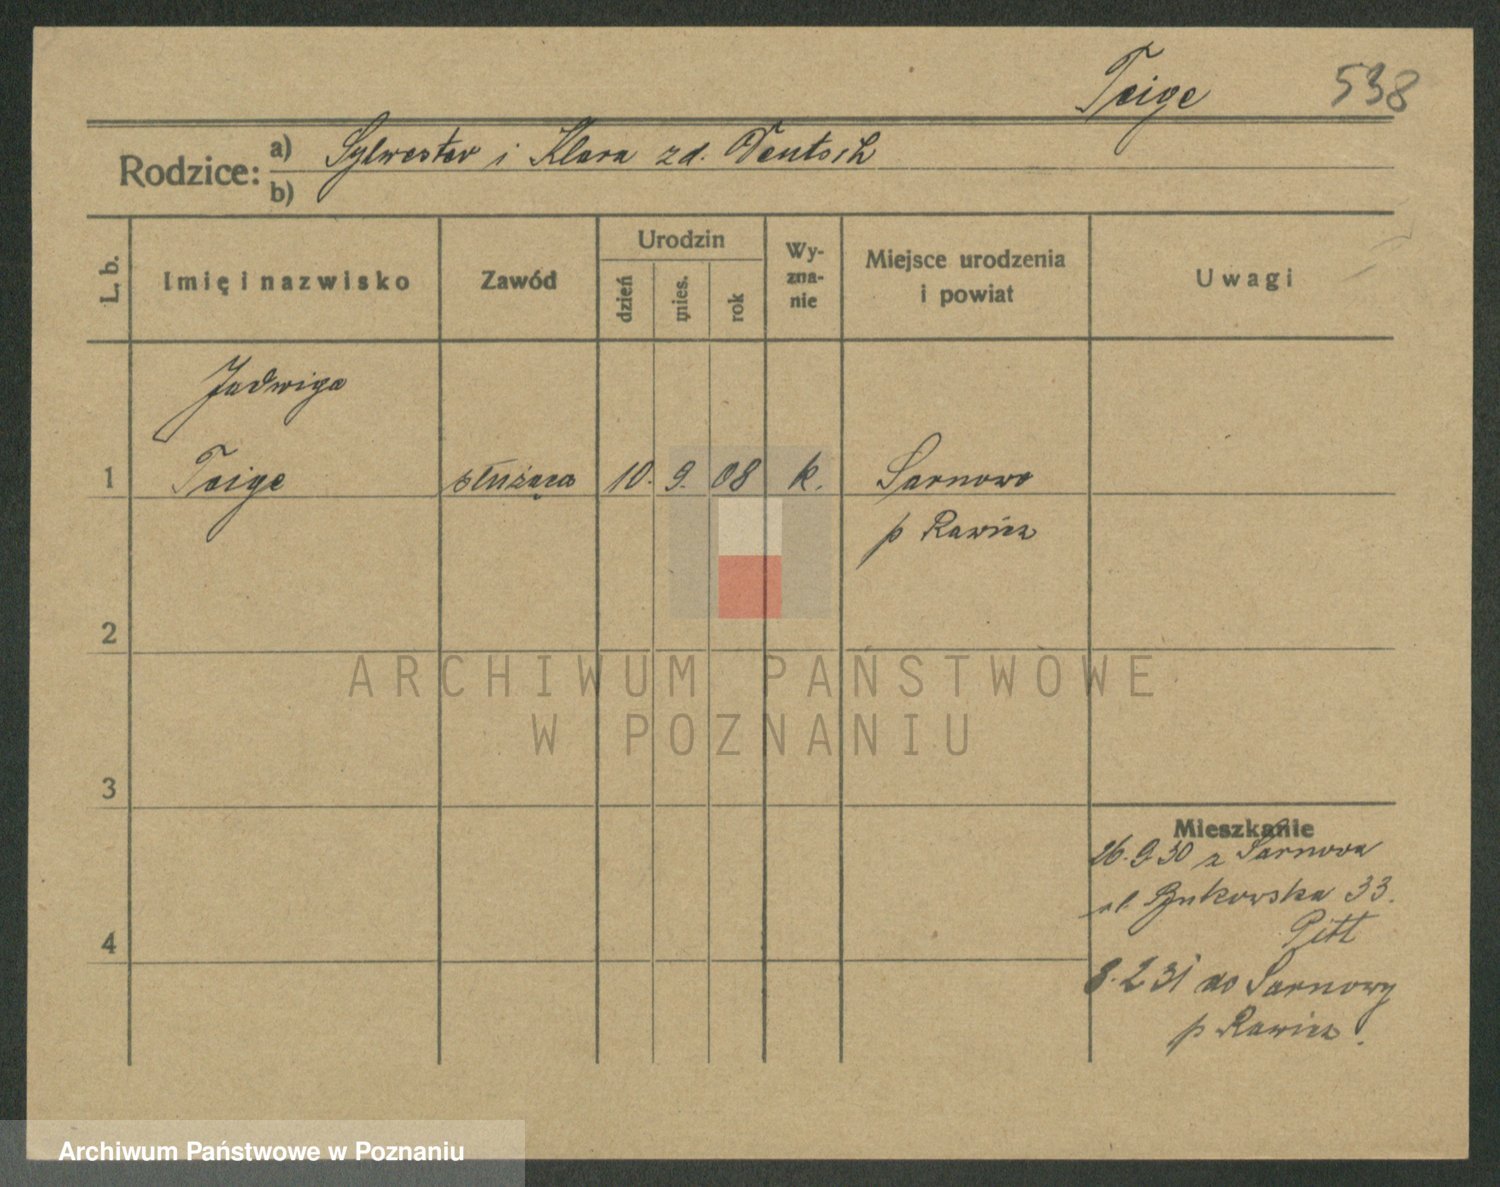 Teige 538
Rodzice: a) Sylwester i Klara zd. Deutsch
b)
L. b. Imię i nazwisko Zawód Urodzin dzień mies. rok Wy-zna-nie Miejsce urodzenia i powiat Uwagi
Jadwiga
1 Teige służąca 10. 9. 08 k. Sarnowo
p Rawicz
2
ARCHIWUM PAŃSTWOWE
W POZNANIU
3
Mieszkanie
26.9.30 z Sarnowa
ul. Bukowska 33.
Pitt
4
8.2.31 do Sarnowy
p Rawicz.
Archiwum Państwowe w Poznaniu